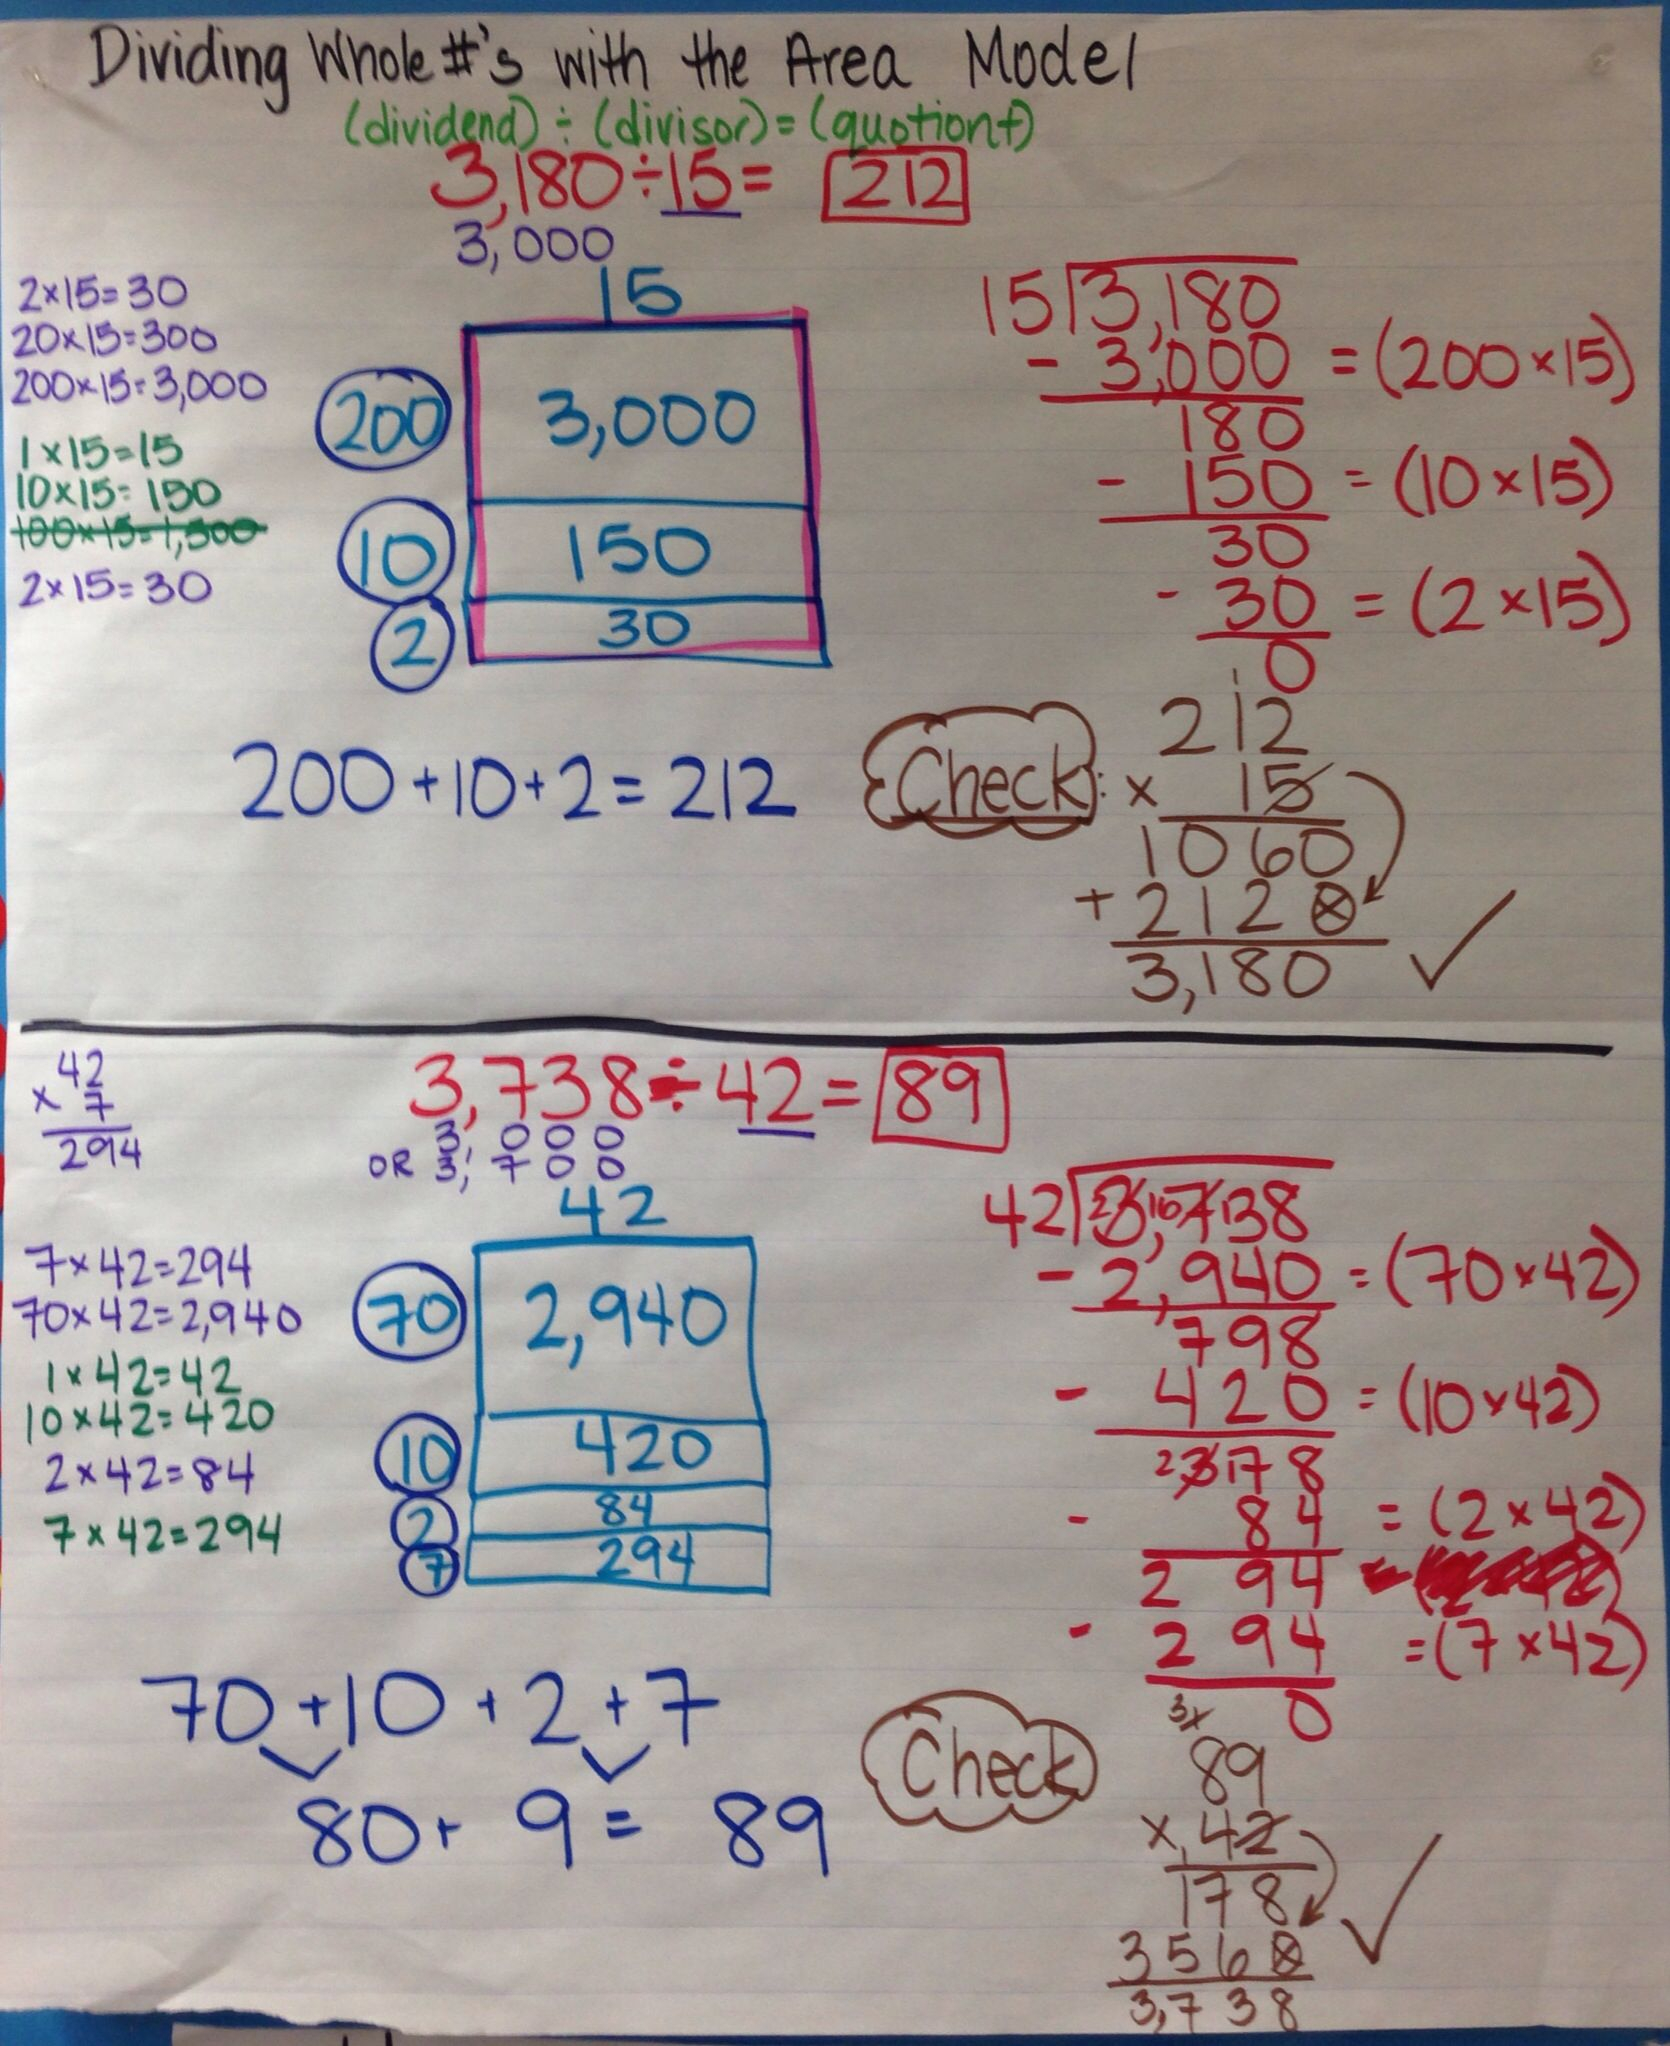 Dividing Whole #'s with the Area Model
(dividend) ÷ (divisor) = (quotiont)
3,180 ÷ 15 = 212
3,000
2×15=30
20×15=300
200×15=3,000
1×15=15
10×15=150
100×15=1,500
2×15=30
15
200 3,000
10 150
2 30
200+10+2=212
15 3,180
- 3,000 = (200×15)
180
- 150 = (10×15)
30
- 30 = (2×15)
0
Check:
1
212
× 15
1060
+2120
3,180 ✓
42
× 7
294
3,738 ÷ 42 = 89
3,000
OR 3,700
7×42=294
70×42=2,940
1×42=42
10×42=420
2×42=84
7×42=294
42
70 2,940
10 420
2 84
7 294
70+10+2+7
80+ 9 = 89
42 2 3,16 7 13 8
- 2,940 = (70×42)
798
- 420 = (10×42)
2 3 17 8
- 84 = (2×42)
294
- 294 = (7×42)
0
Check
3 1
89
× 42
178
3560
3,738 ✓